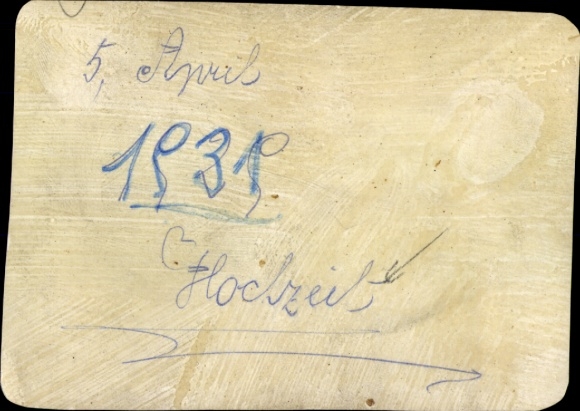 5. April
1939
Hochzeit